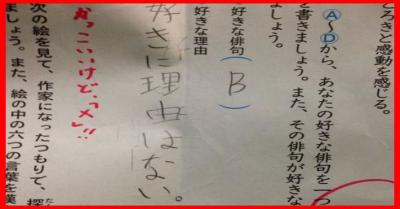 どろきと感動を感じる。
Ⓐ〜Ⓓから、あなたの好きな俳句を一つ
を書きましょう。また、その俳句が好きな
ましょう。
好きな俳句（B）
好きな理由
好きに理由はない。
かっこいいけど、「メ」!!
次の絵を見て、作家になったつもりて、探
ましょう。また、絵の中の六つの言葉を漢